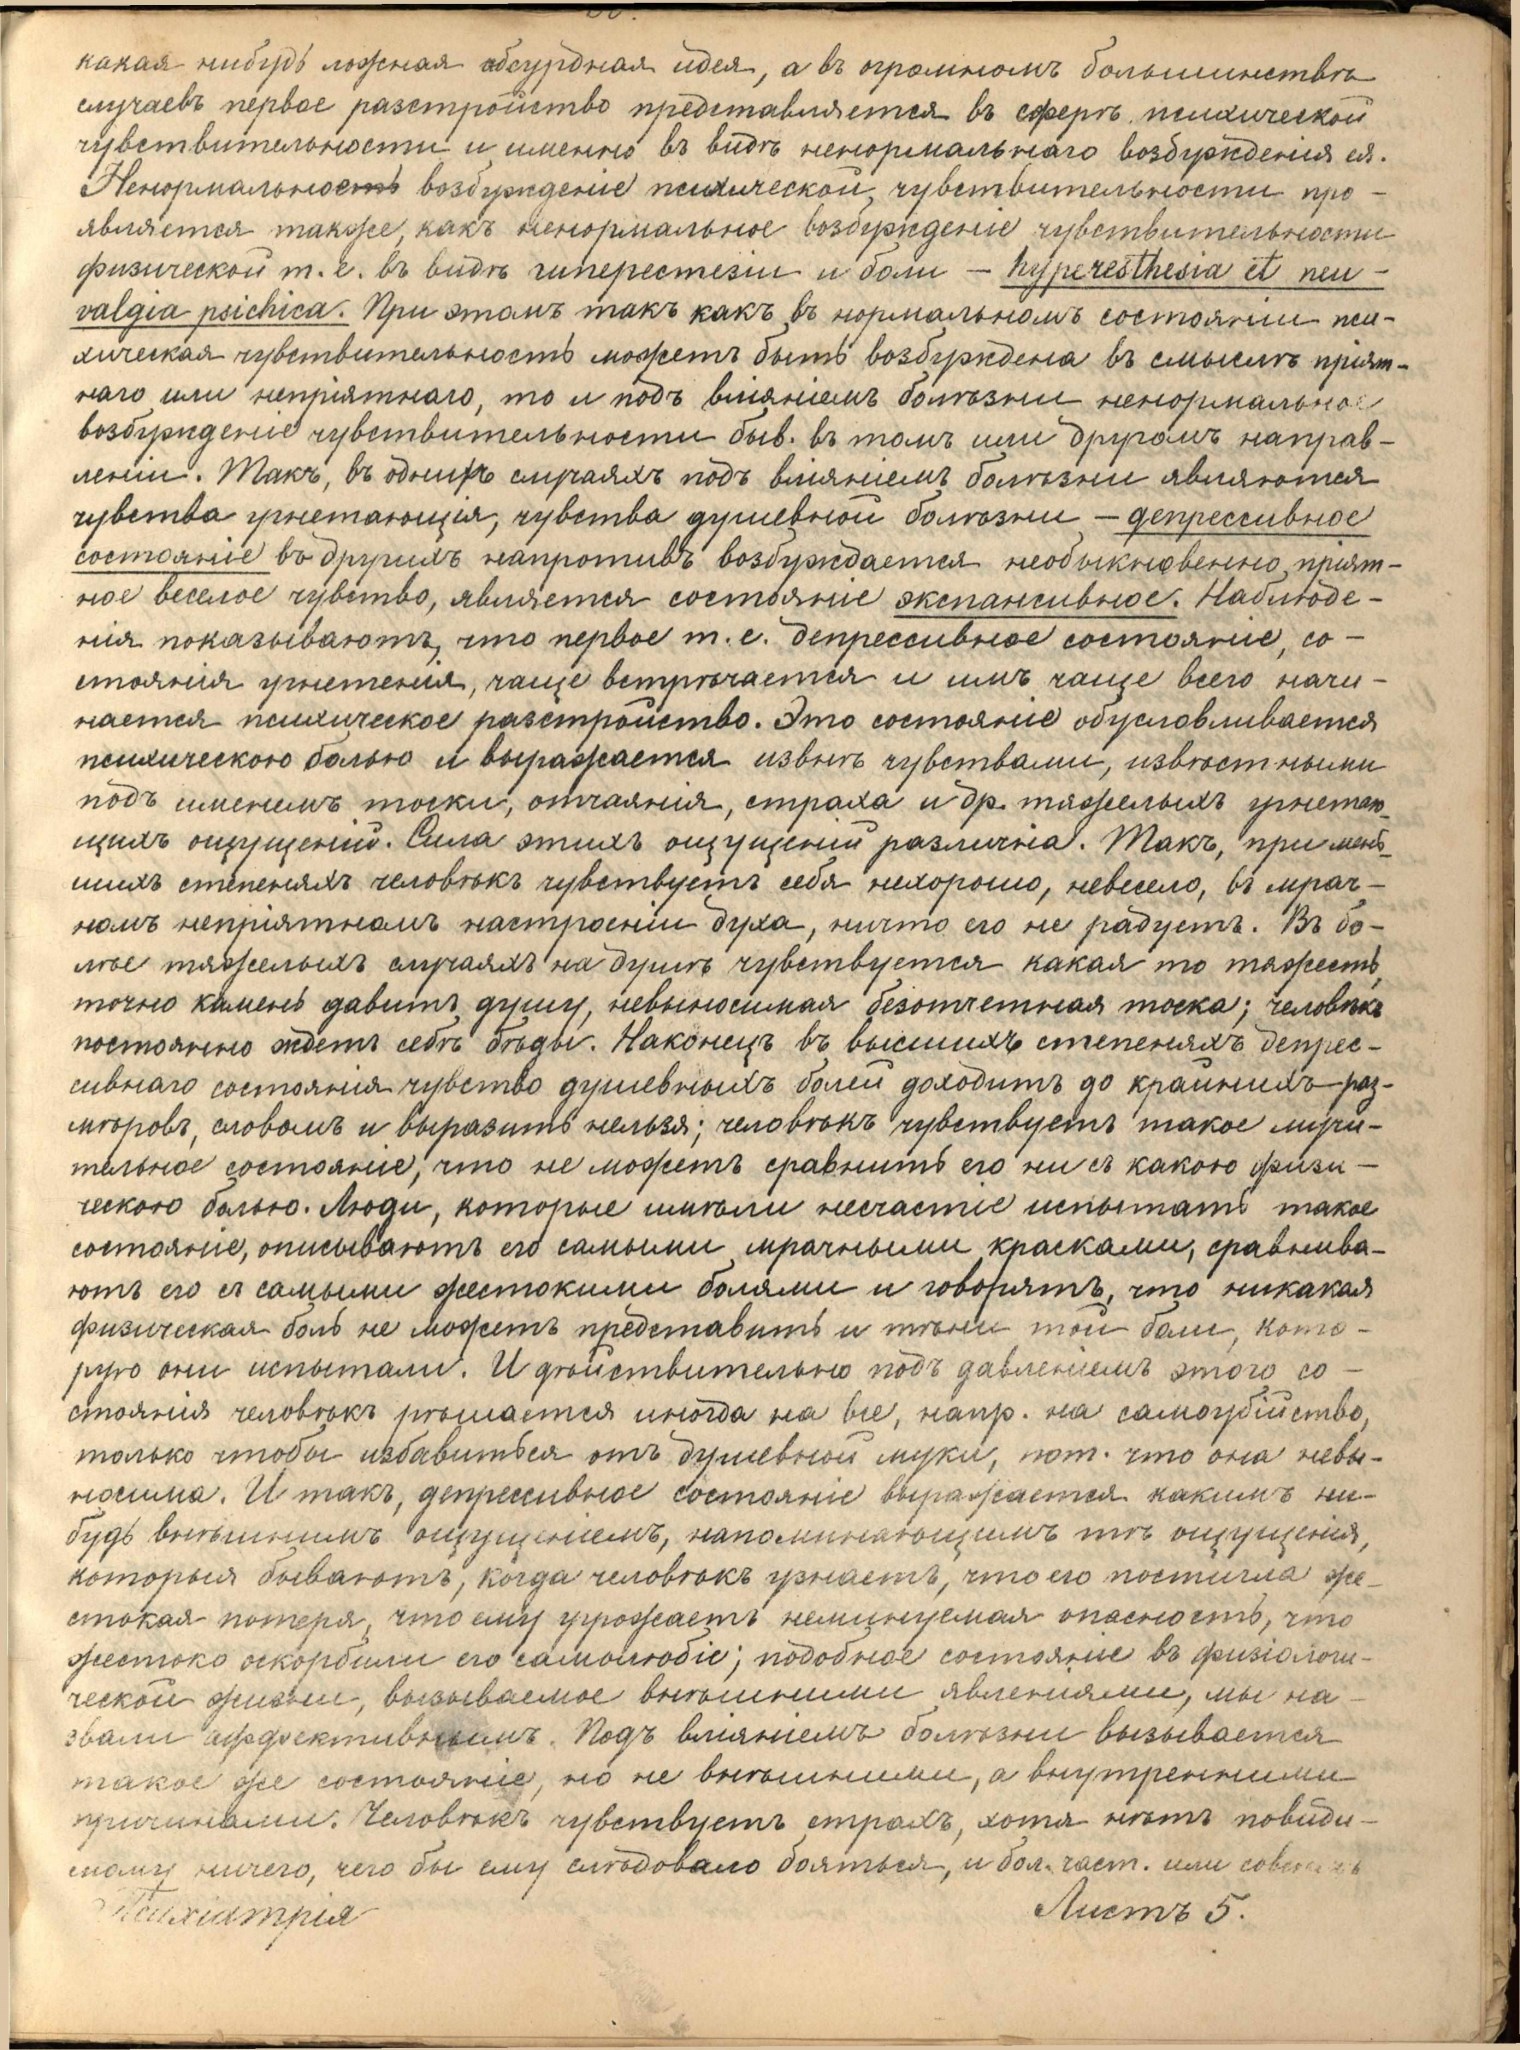 какая нибудь ложная абсурдная идея, а въ огромномъ большинствѣ
случаевъ первое разстройство представляется въ сферѣ психической
чувствительности и именно въ видѣ ненормальнаго возбужденія ея.
Ненормальность возбужденіе психической чувствительности про-
является также, какъ ненормальное возбужденіе чувствительности
физической т. е. въ видѣ гиперестезіи и боли — hyperesthesia et neu-
ralgia psichica. При этомъ такъ какъ въ нормальномъ состояніи пси-
хическая чувствительность можетъ быть возбуждена въ смыслѣ пріят-
наго или непріятнаго, то и подъ вліяніемъ болѣзни ненормальное
возбужденіе чувствительности быв. въ томъ или другомъ направ-
леніи. Такъ, въ однихъ случаяхъ подъ вліяніемъ болѣзни являются
чувства угнетающія, чувства душевной болѣзни — депрессивное
состояніе въ другихъ напротивъ возбуждается необыкновенно пріят-
ное веселое чувство, является состояніе экспансивное. Наблюде-
нія показываютъ, что первое т. е. депрессивное состояніе, со-
стоянія угнетенія, чаще встрѣчается и имъ чаще всего начи-
нается психическое разстройство. Это состояніе обусловливается
психическою болью и выражается извнѣ чувствами, извѣстными
подъ именемъ тоски, отчаянія, страха и др. тяжелыхъ угнетаю-
щихъ ощущеній. Сила этихъ ощущеній различна. Такъ, при мень-
шихъ степеняхъ человѣкъ чувствуетъ себя нехорошо, невесело, въ мрач-
номъ непріятномъ настроеніи духа, ничто его не радуетъ. Въ бо-
лѣе тяжелыхъ случаяхъ на душѣ чувствуется какая то тяжесть,
точно камень давитъ душу, невыносимая безотчетная тоска; человѣкъ
постоянно ждетъ себѣ бѣды. Наконецъ въ высшихъ степеняхъ депрес-
сивнаго состоянія чувство душевныхъ болей доходитъ до крайнихъ раз-
мѣровъ, словомъ и выразить нельзя; человѣкъ чувствуетъ такое мучи-
тельное состояніе, что не можетъ сравнить его ни съ какою физи-
ческою болью. Люди, которые имѣли несчастіе испытать такое
состояніе, описываютъ его самыми мрачными красками, сравнива-
ютъ его съ самыми жестокими болями и говорятъ, что никакая
физическая боль не можетъ представить и тѣни той боли, кото-
рую они испытали. И дѣйствительно подъ давленіемъ этого со-
стоянія человѣкъ рѣшается иногда на все, напр. на самоубійство,
только чтобы избавиться отъ душевной муки, пот. что она невы-
носима. И такъ, депрессивное состояніе выражается какимъ ни-
будь внѣшнимъ ощущеніемъ, напоминающимъ тѣ ощущенія,
которыя бываютъ, когда человѣкъ узнаетъ, что его постигла же-
стокая потеря, что ему угрожаетъ неминуемая опасность, что
жестоко оскорбили его самолюбіе; подобное состояніе въ физіологи-
ческой жизни, вызываемое внѣшними явленіями, мы на-
звали аффективнымъ. Подъ вліяніемъ болѣзни вызывается
такое же состояніе, но не внѣшними, а внутренними
причинами. Человѣкъ чувствуетъ страхъ, хотя нѣтъ повиди-
мому ничего, чего бы ему слѣдовало бояться, и бол. част. или совсѣмъ
Психіатрія
Листъ 5.